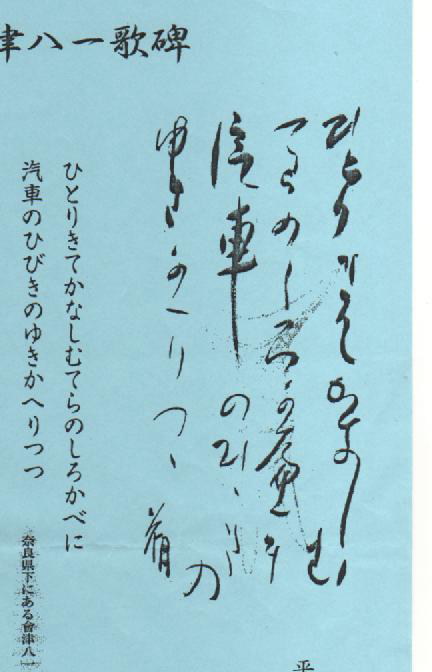 津八一歌碑
ひとりきてかなしむ
てらのしろか
汽車のひゝきの
ゆきかへりつゝ
ひとりきてかなしむてらのしろかべに
汽車のひびきのゆきかへりつつ
奈良県下にある會津八一
平